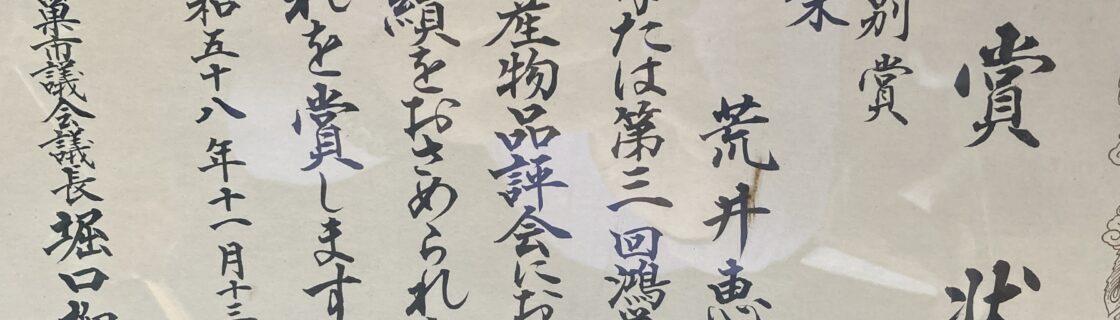 賞状
別賞
荒井恵
たは第三回鴻
産物品評会にお
績をおさめられ
れを賞します
和五十八年十一月十三
巣市議会議長 堀口